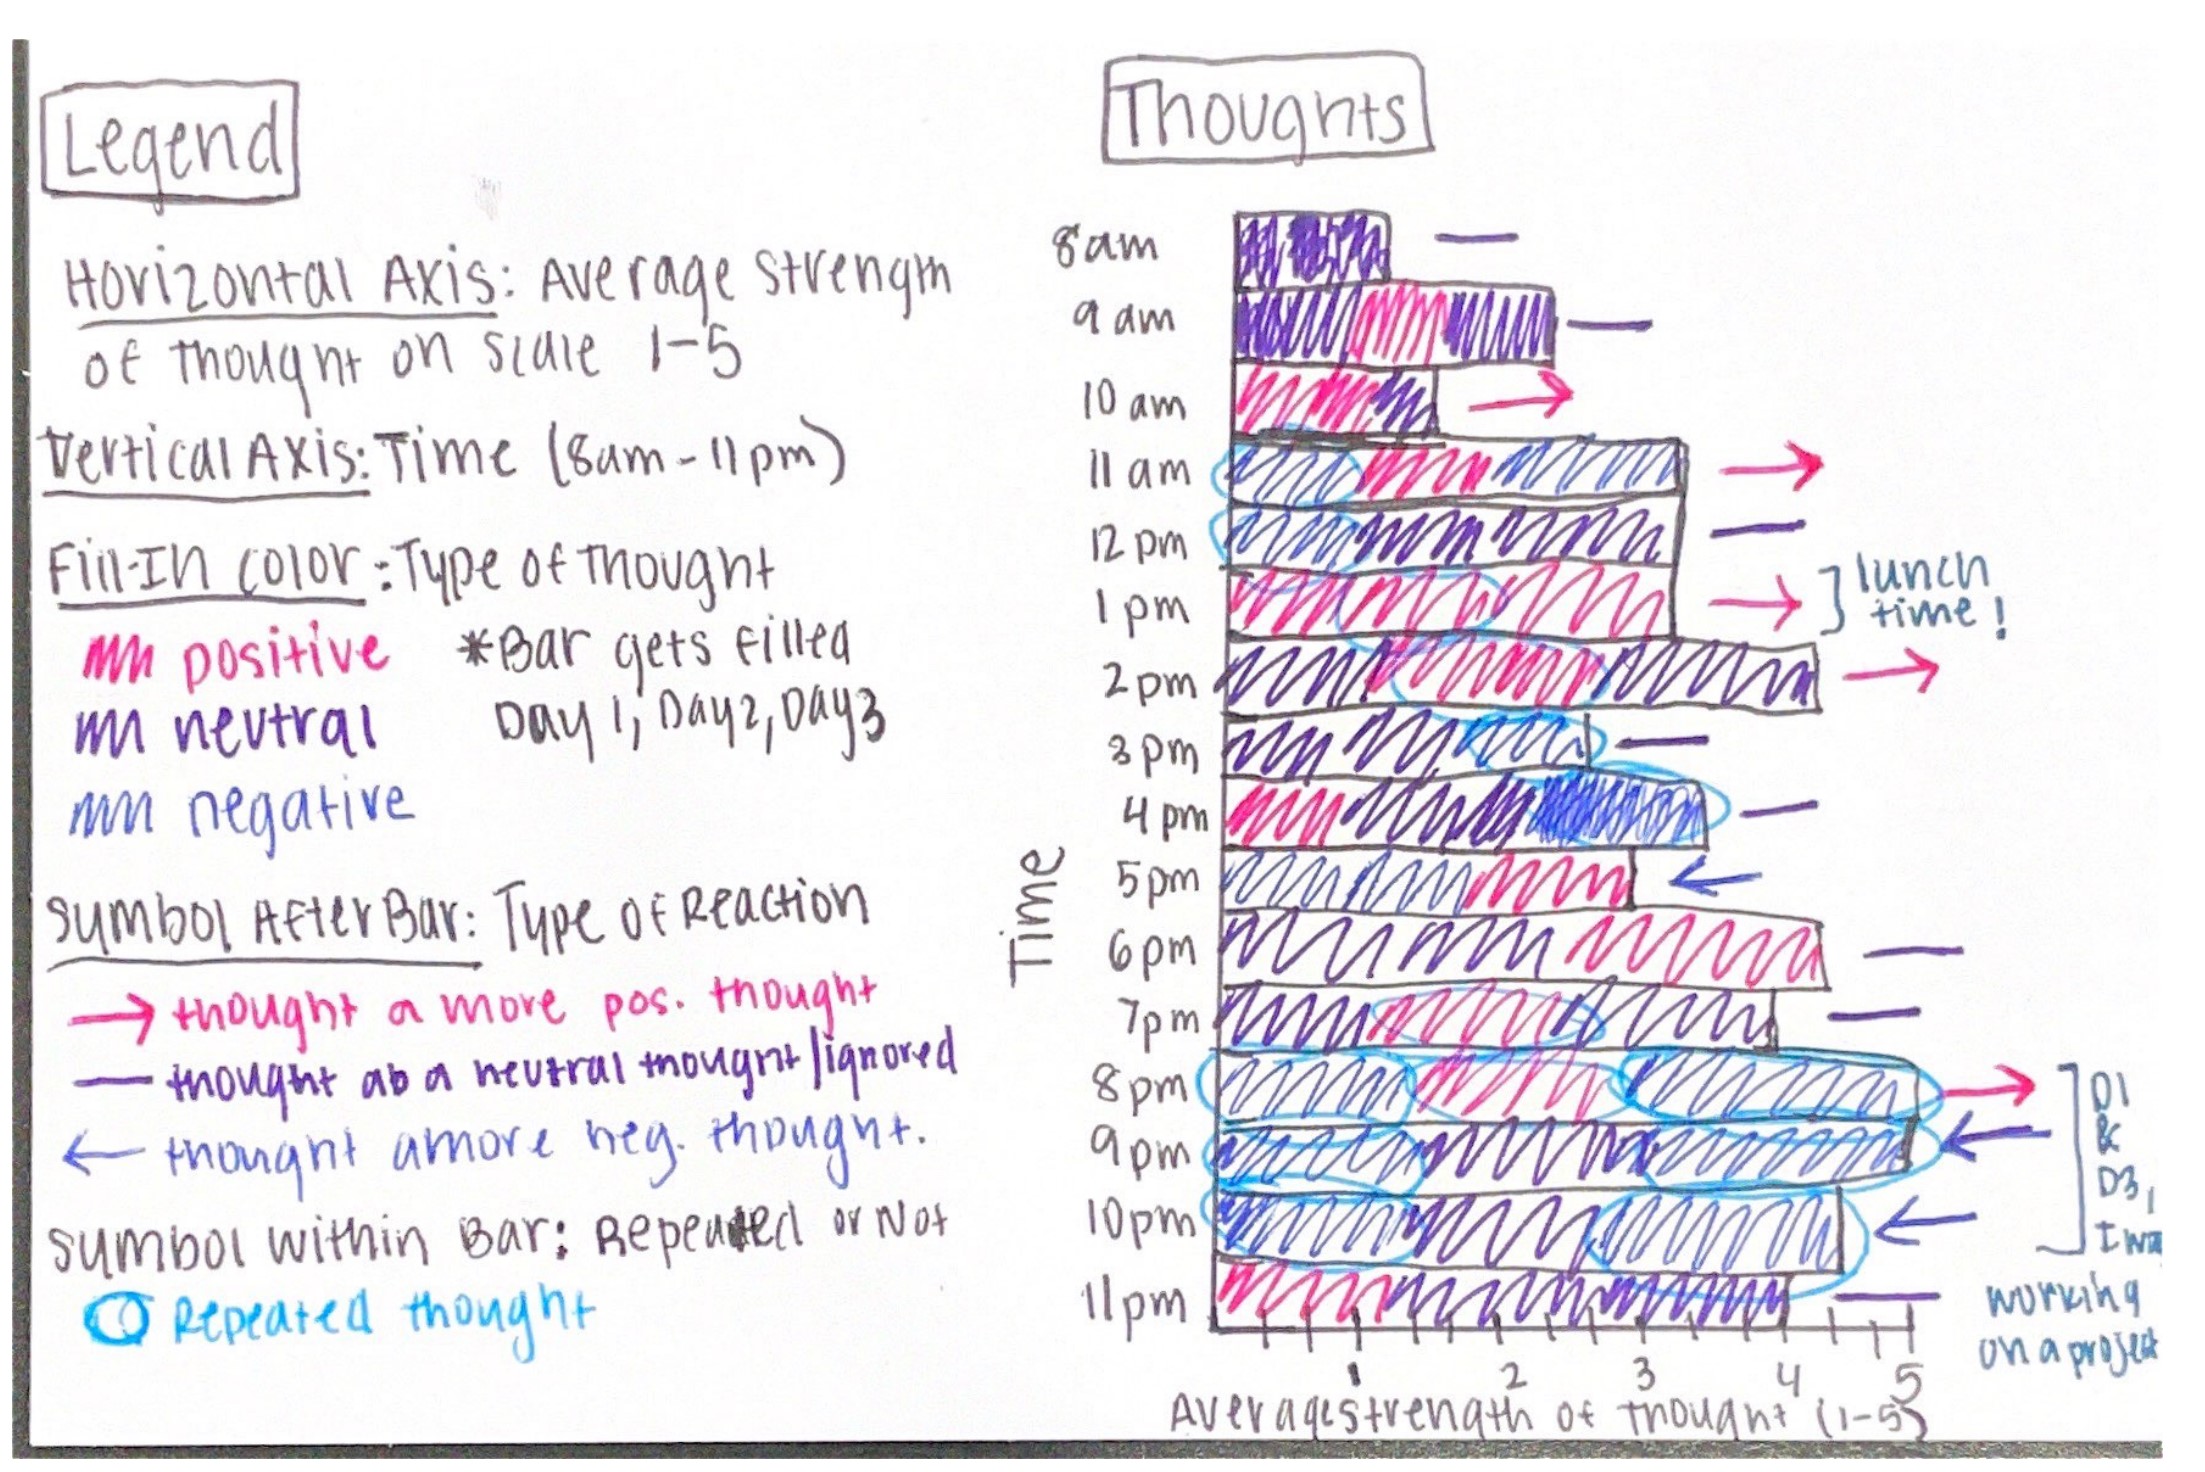 Legend
Horizontal Axis: Average strength
of thought on scale 1-5
Vertical Axis: Time (8am - 11pm)
Fill-In color: Type of thought
positive
neutral
negative
*Bar gets filled
Day 1, Day 2, Day 3
Symbol After Bar: Type of Reaction
thought a more pos. thought
thought ab a neutral thought/ignored
thought a more neg. thought.
Symbol within Bar: Repeated or Not
Repeated thought
Thoughts
8am
9 am
10 am
11 am
12 pm
1 pm
2 pm
3 pm
4 pm
5pm
6pm
7pm
8pm
9pm
10pm
11pm
Time
lunch
time!
D1
&
D3,
I wa
working
on a project
1 2 3 4 5
Average strength of thought (1-5)